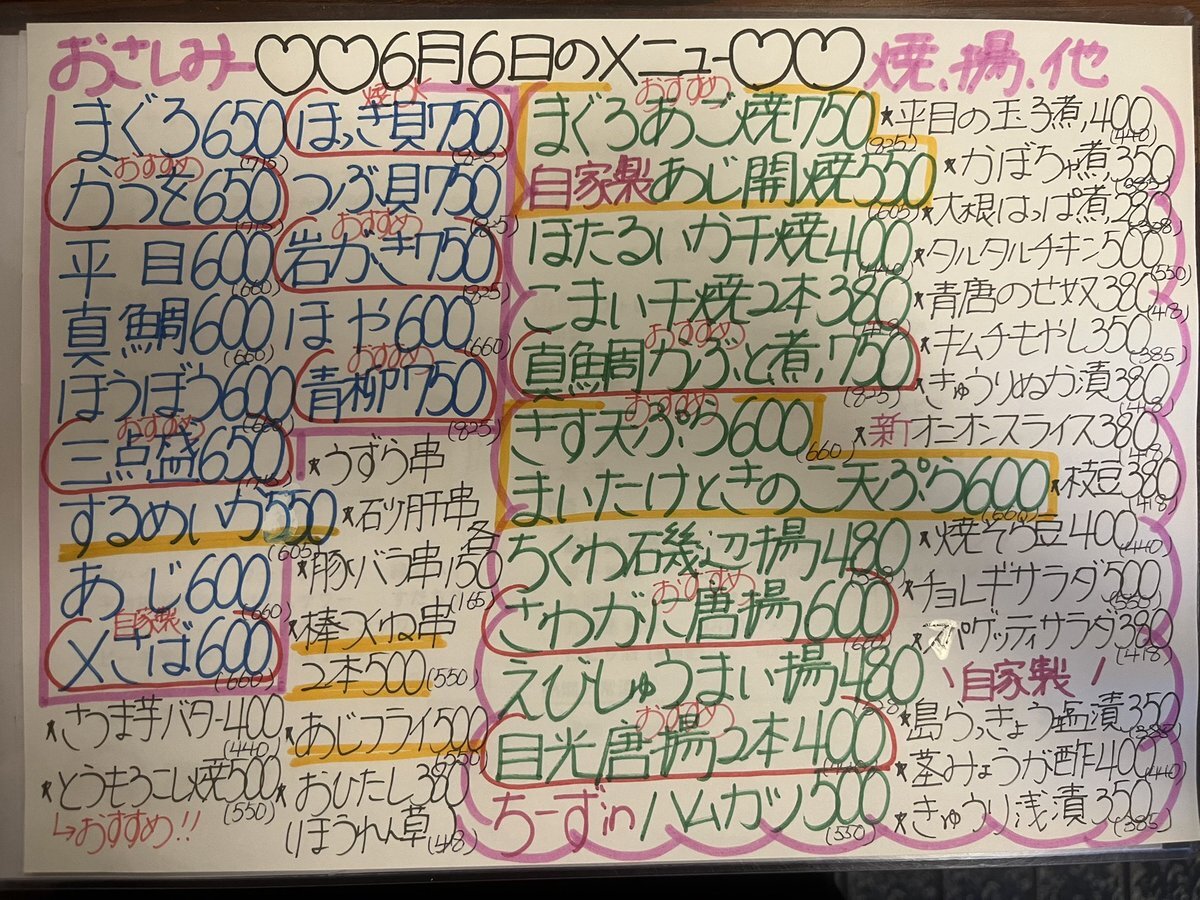 おさしみ
♡♡6月6日のメニュー♡♡
焼、揚、他
まぐろ650
(715)
おすすめ
かつを650
(715)
平目600
(660)
真鯛600
(660)
ほうぼう600
おすすめ
三点盛650
するめいか550
(605)
あじ600
(660)
自家製
〆さば600
(660)
焼OK
ほっき貝750
つぶ貝750
(825)
おすすめ
岩がき750
(825)
ほや600
(660)
おすすめ
青柳750
(825)
★うずら串
★砂肝串
★豚バラ串
各150
(165)
★棒つくね串
2本500(550)
★さつま芋バター400
(440)
★とうもろこし焼500
(550)
↳おすすめ!!
★あじフライ500
(550)
★おひたし380
(ほうれん草)
(418)
おすすめ
まぐろあご焼750
(825)
自家製あじ開焼550
(605)
ほたるいか干焼400
(440)
こまい干焼2本380
おすすめ
真鯛かぶと煮,750
(825)
おすすめ
きす天ぷら600
(660)
まいたけときのこ天ぷら600
(660)
ちくわ石磯辺揚480
おすすめ
さわがに唐揚600
(660)
えびしゅうまい揚480
おすすめ
目光唐揚2本400
ちーずinハムカツ500
(550)
★平目の玉子煮,400
(440)
★かぼちゃ煮350
(385)
★大根はっぱ煮280
★タルタルチキン500
(550)
★青唐のせ奴380
(418)
★キムチもやし350
(385)
★きゅうりぬか漬380
(418)
★新オニオンスライス380
(418)
★枝豆380
(418)
★焼そら豆400
(440)
★チョレギサラダ500
(550)
★スパゲッティサラダ380
(418)
\自家製/
★島らっきょう塩漬350
(385)
★茎みょうが酢400
(440)
★きゅうり浅漬350
(385)